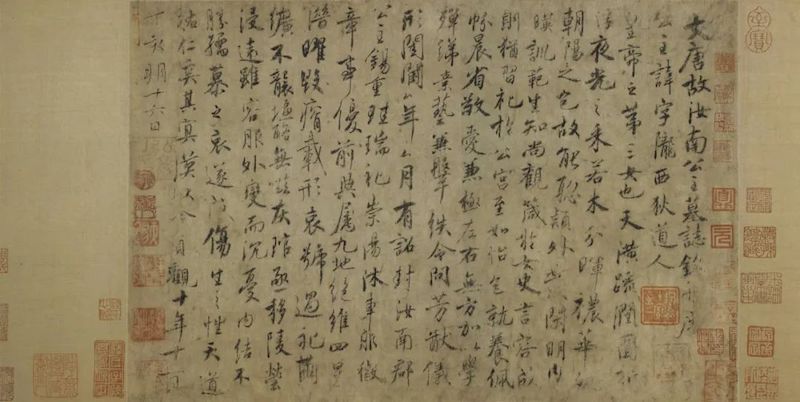 大唐故汝南公主墓誌銘并序
公主諱字隴西狄道人
皇帝之第三女也天潢疏潤圓折
浮夜光之采若木分暉穠華照
朝陽之色故能聰穎外發閑明內
暎訓範生知尚觀箴於女史言容成
則猶習礼於公宮至如怡色就養佩
帨晨省敬愛兼極左右無方加以學
殫綈素藝兼鞶紩令問芳猷儀
形閨閫厶年厶月有詔封汝南郡
公主錫重珪瑞礼崇湯沐車服徽
章事優前典屬九地絕維四星
潛曜毀瘠載形哀號過礼繭
纊不襲塩酪無嗞灰琯亟移陵塋
浸遠雖容服外變而沉憂內結不
勝孺慕之哀遂成傷生之性天道
祐仁奚其冥漠以今貞觀十年十一月
丁亥朔十六日